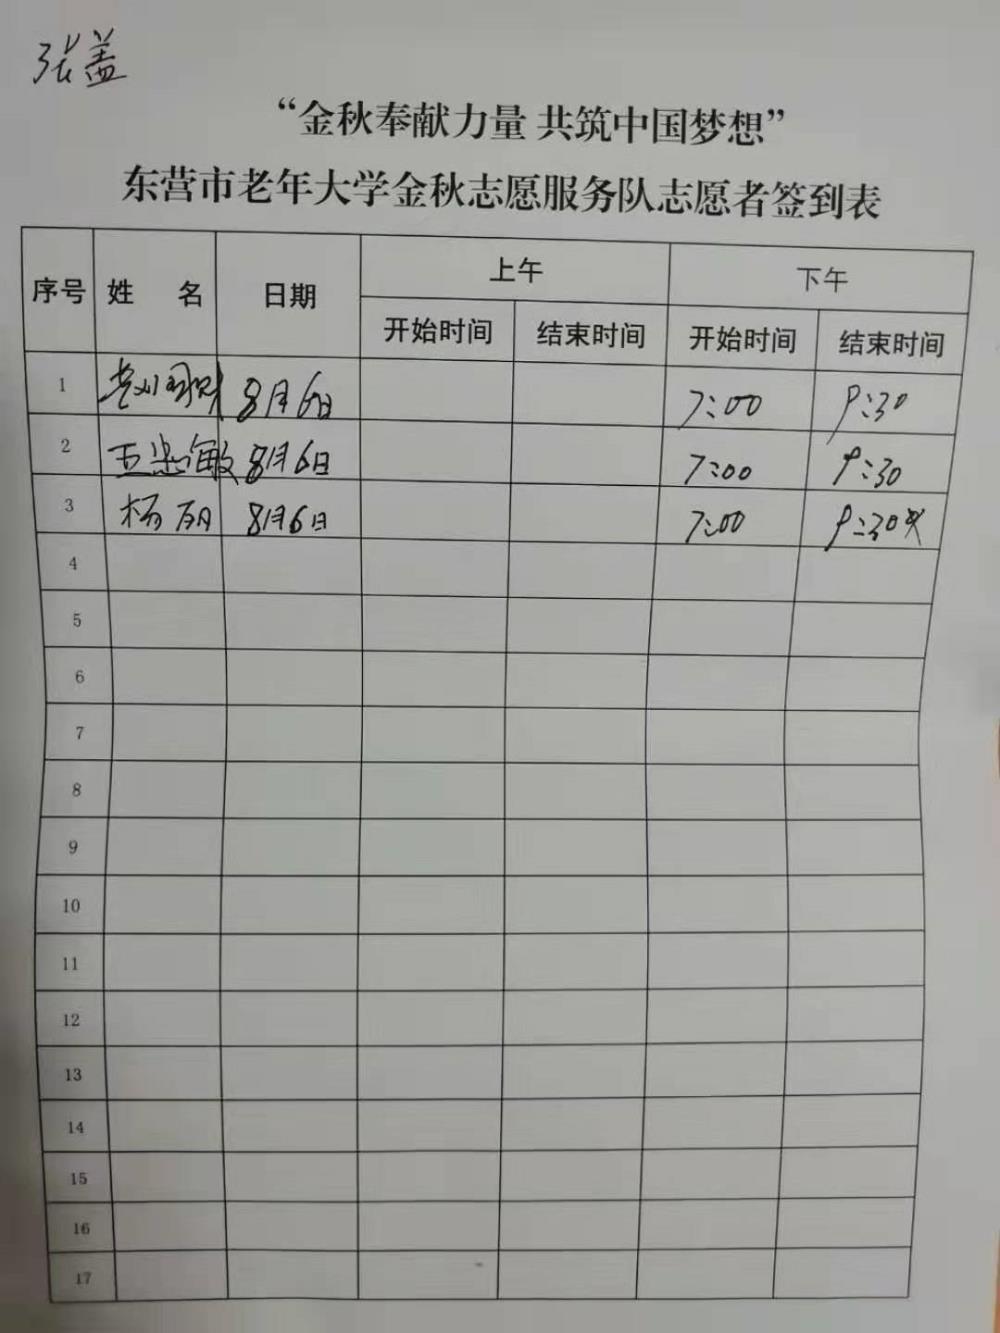 张盖
“金秋奉献力量 共筑中国梦想”
东营市老年大学金秋志愿服务队志愿者签到表
序号 姓 名 日期 上午 下午
开始时间 结束时间 开始时间 结束时间
1 8月6日 7:00 9:30
2 王忠敏 8月6日 7:00 9:30
3 杨丽 8月6日 7:00 9:30
4
5
6
7
8
9
10
11
12
13
14
15
16
17